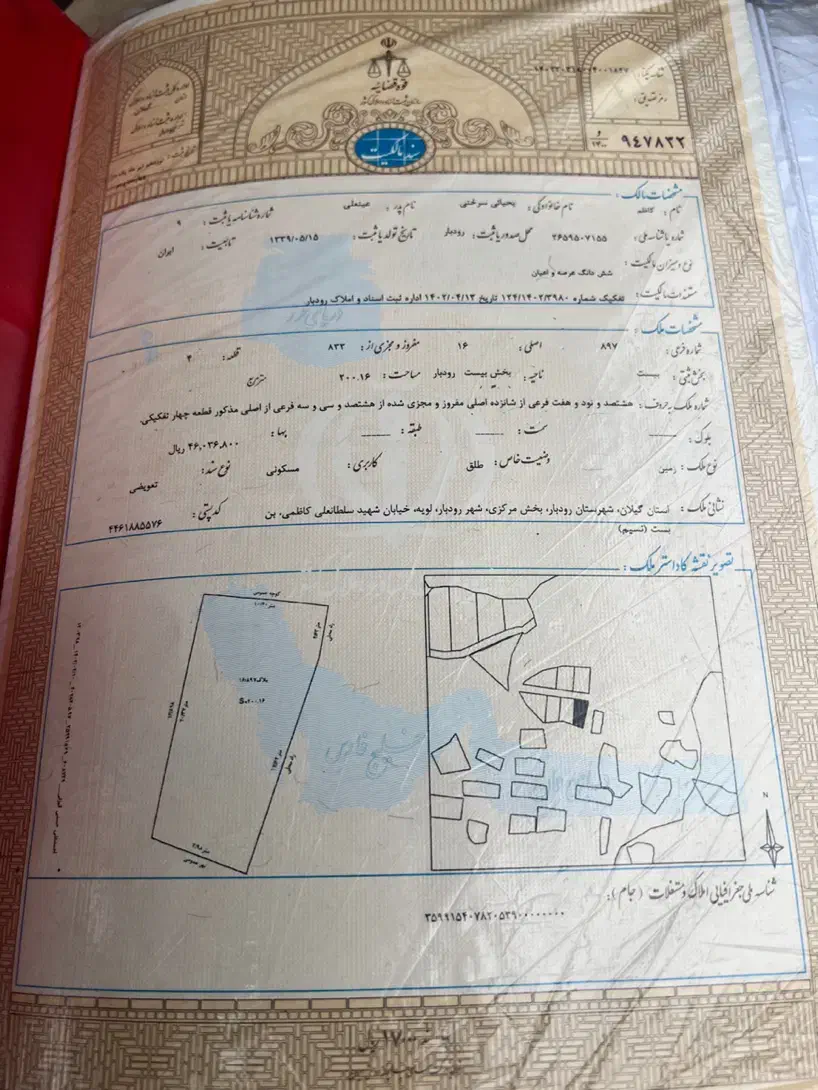 قوه قضائیه
سازمان ثبت اسناد و املاک کشور
سند مالکیت
۹۴۷۸۲۲
مشخصات مالک :
نام : نام خانوادگی : یحیائی سرختی نام پدر : عینعلی شماره شناسنامه یا ثبت : ۹
شماره یا شناسه ملی : ۲۶۵۹۵۰۷۱۵۵ محل صدور یا ثبت : رودبار تاریخ تولد یا ثبت : ۱۳۳۹/۰۵/۱۵ تابعیت : ایران
نوع و میزان مالکیت : شش دانگ عرصه و اعیان
مستندات مالکیت : تفکیک شماره ۱۲۴/۱۴۰۲/۳۹۸۰ تاریخ ۱۴۰۲/۰۴/۱۳ اداره ثبت اسناد و املاک رودبار
مشخصات ملک :
شماره فرعی : ۸۹۷ اصلی : ۱۶ مفروز و مجزی از : ۸۳۳ قطعه : ۴
بخش ثبتی : بیست ناحیه : بخش بیست رودبار مساحت : ۲۰۰.۱۶ مترمربع
شماره ملک به حروف : هشتصد و نود و هفت فرعی از شانزده اصلی مفروز و مجزی شده از هشتصد و سی و سه فرعی از اصلی مذکور قطعه چهار تفکیکی.
بلوک : سمت : طبقه : بها : ۴۶,۰۳۶,۸۰۰ ریال
نوع ملک : زمین وضعیت خاص : طلق کاربری : مسکونی نوع سند : تعویضی
نشانی ملک : استان گیلان، شهرستان رودبار، بخش مرکزی، شهر رودبار، لویه، خیابان شهید سلطانعلی کاظمی، بن کدپستی : ۴۴۶۱۸۸۵۵۷۶
بست (نسیم)
تصویر نقشه کاداستر ملک :
کوچه عمومی
پلاک ۱۶/۸۹۷
S=۲۰۰.۱۶
خلیج فارس
N
شناسه ملی جغرافیایی املاک و مستغلات (جام) :
۳۵۹۹۱۵۴۰۷۸۲۰۵۳۹۰۰۰۰۰۰۰۰